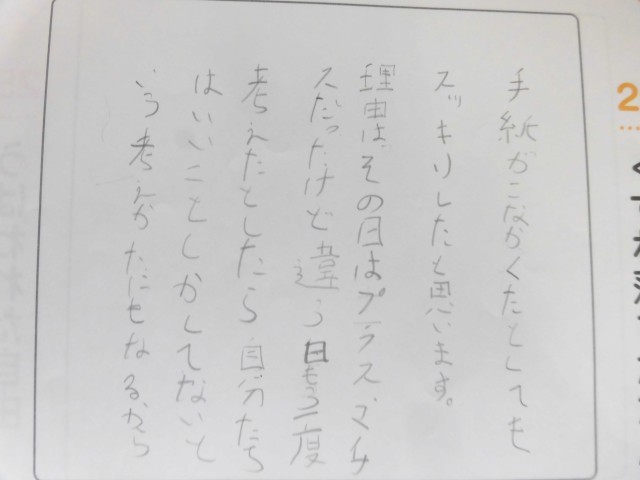 手紙がこなかくたとしても
スッキリしたと思います。
理由は、その日はプラスマイ
スだったけど違う日もう一度
考えたとしたら自分たち
はいいことしかしてないと
いう考えかたにもなるから
2